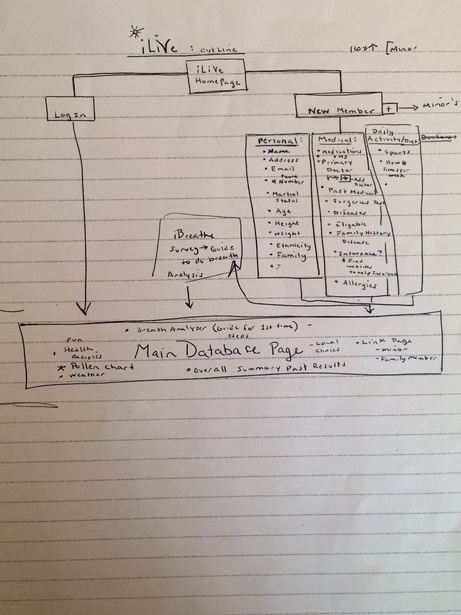 iLiVe : outline
16↑ [Minor
iLiVe
HomePage
Log In
New Member + → Minor's
Personal:
• Name
• Address
• Email
• Phone # Number
• Martial Status
• Age
• Height
• Weight
• Ethnicity
• Family
Medical:
• Medications
• Primary Doctor
+ Add Doctor
• Past Medical
• Surgeries Past
• Diseases
• Eligable
• Family History Disease
• Insurance?
+ Find websites to help insurance
• Allergies
Daily
Activity/Diet
Doctors
• Sports
• How # times per week
iBreathe
Survey → Guide
to do breath
Analysis
• Breath Analyzer (Guide for 1st time) -
Steps
Main Database Page
Fun
• Health Recipies
* Pollen Chart
• Weather
- Local Clinics
• Link Page
- minor
- Family Member
• Overall Summary Past Results